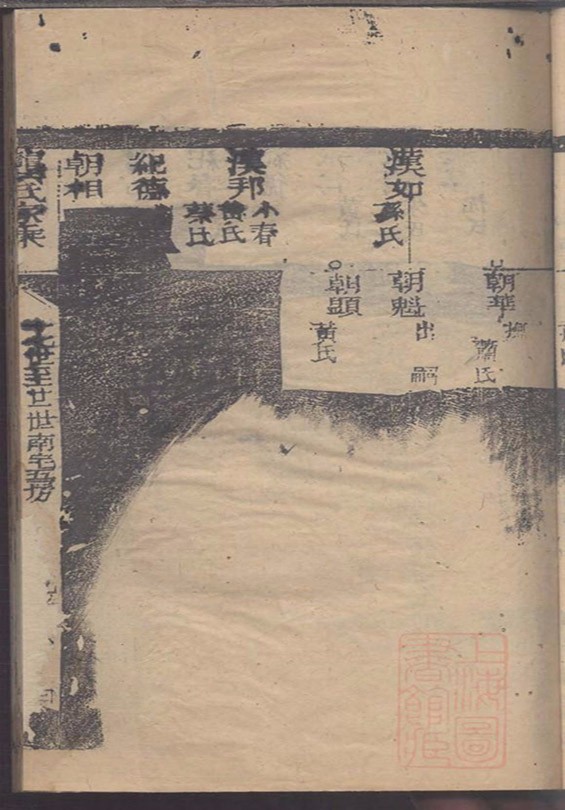 朝華
蕭氏
漢如
孫氏
朝魁
出嗣
朝顯
黃氏
漢邦
小春
黃氏
蔡氏
紀德
朝相
氏家乘
世至廿世南宅五房
上海圖書館藏